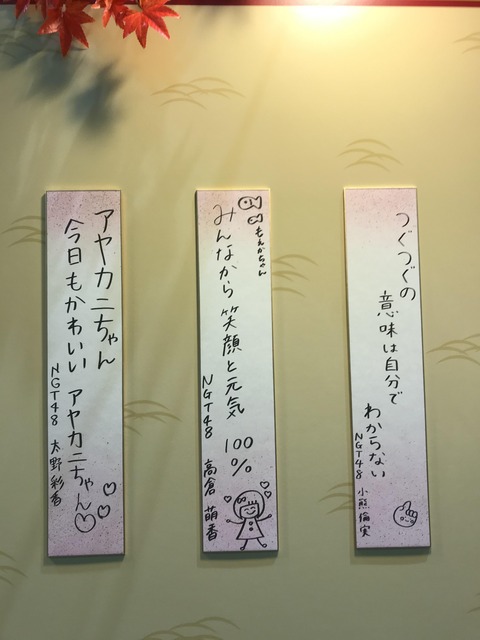 つぐつぐの
意味は自分で
わからない
NGT48 小熊倫実
もえかちゃん
みんなから笑顔と元気
100%
NGT48 高倉萌香
アヤカニちゃん
今日もかわいい アヤカニちゃん
NGT48 太野彩香